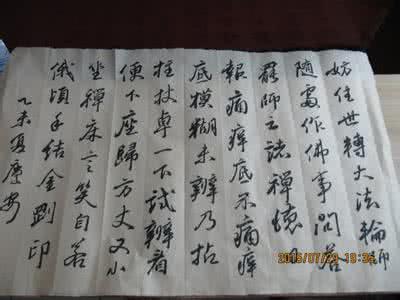 妨住世轉大法輪印
隨處作佛事問答
罷師云諸禪德
報痛痒底不痛痒
底模糊未辨乃拈
拄杖卓一下試辨看
便下座歸方丈又小
坐禪床言笑自若
俄頃手結金剛印
乙未夏康安
2015/07/29 19:34